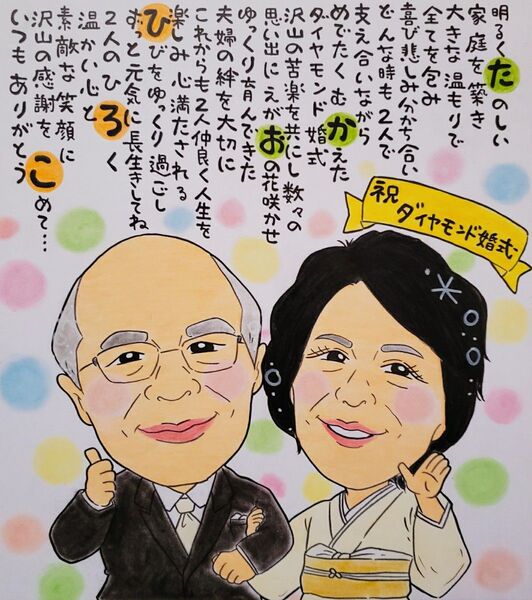 明るくたのしい
家庭を築き
大きな温もりで
全てを包み
喜び悲しみ分かち合い
どんな時も2人で
支え合いながら
めでたくむかえた
ダイヤモンド婚式
沢山の苦楽を共にし数々の
思い出にえがおの花咲かせ
ゆっくり育んできた
夫婦の絆を大切に
これからも2人仲良く人生を
楽しみ心満たされる
ひびをゆっくり過ごし
ずっと元気に長生きしてね
2人のひろく
温かい心と
素敵な笑顔に
沢山の感謝をこめて…
いつもありがとう
祝ダイヤモンド婚式